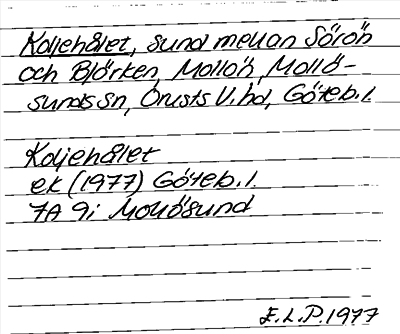 Koljehålet, sund mellan Söröh
och Björken, Mollöh, Mollö-
sunds sn, Orusts V. hd, Göteb. l.
Koljehålet
ek (1977) Göteb. l.
7A 9i Mollösund
E.L.P. 1977